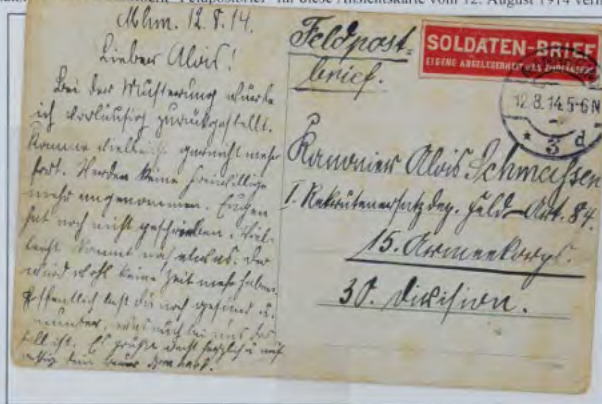 "Feldpostbrief" für diese Ansichtskarte vom 12. August 1914
Mhm. 12.8.14.
Lieber Alois!
Bei der Musterung wurde
ich vorläufig zurückgestellt.
Komme vielleicht garnicht mehr
fort. Werden keine Freiwillige
mehr angenommen. Eugen
hat noch nicht geschrieben. Viel-
leicht kommt noch etwas. Der
wird wohl keine Zeit mehr haben.
Hoffentlich bist du noch gesund u.
munter, was auch bei uns der
Fall ist. Es grüßt dich herzlich
dein
Feldpost-
brief.
SOLDATEN-BRIEF
EIGENE ANGELEGENHEIT DES EMPFÄNGERS
12.8.14.5-6N
* 3 d
Kanonier Alois Schmassen
I. Rekrutenersatzdep. Feld-Art. 84.
15. Armeekorps.
30. Division.